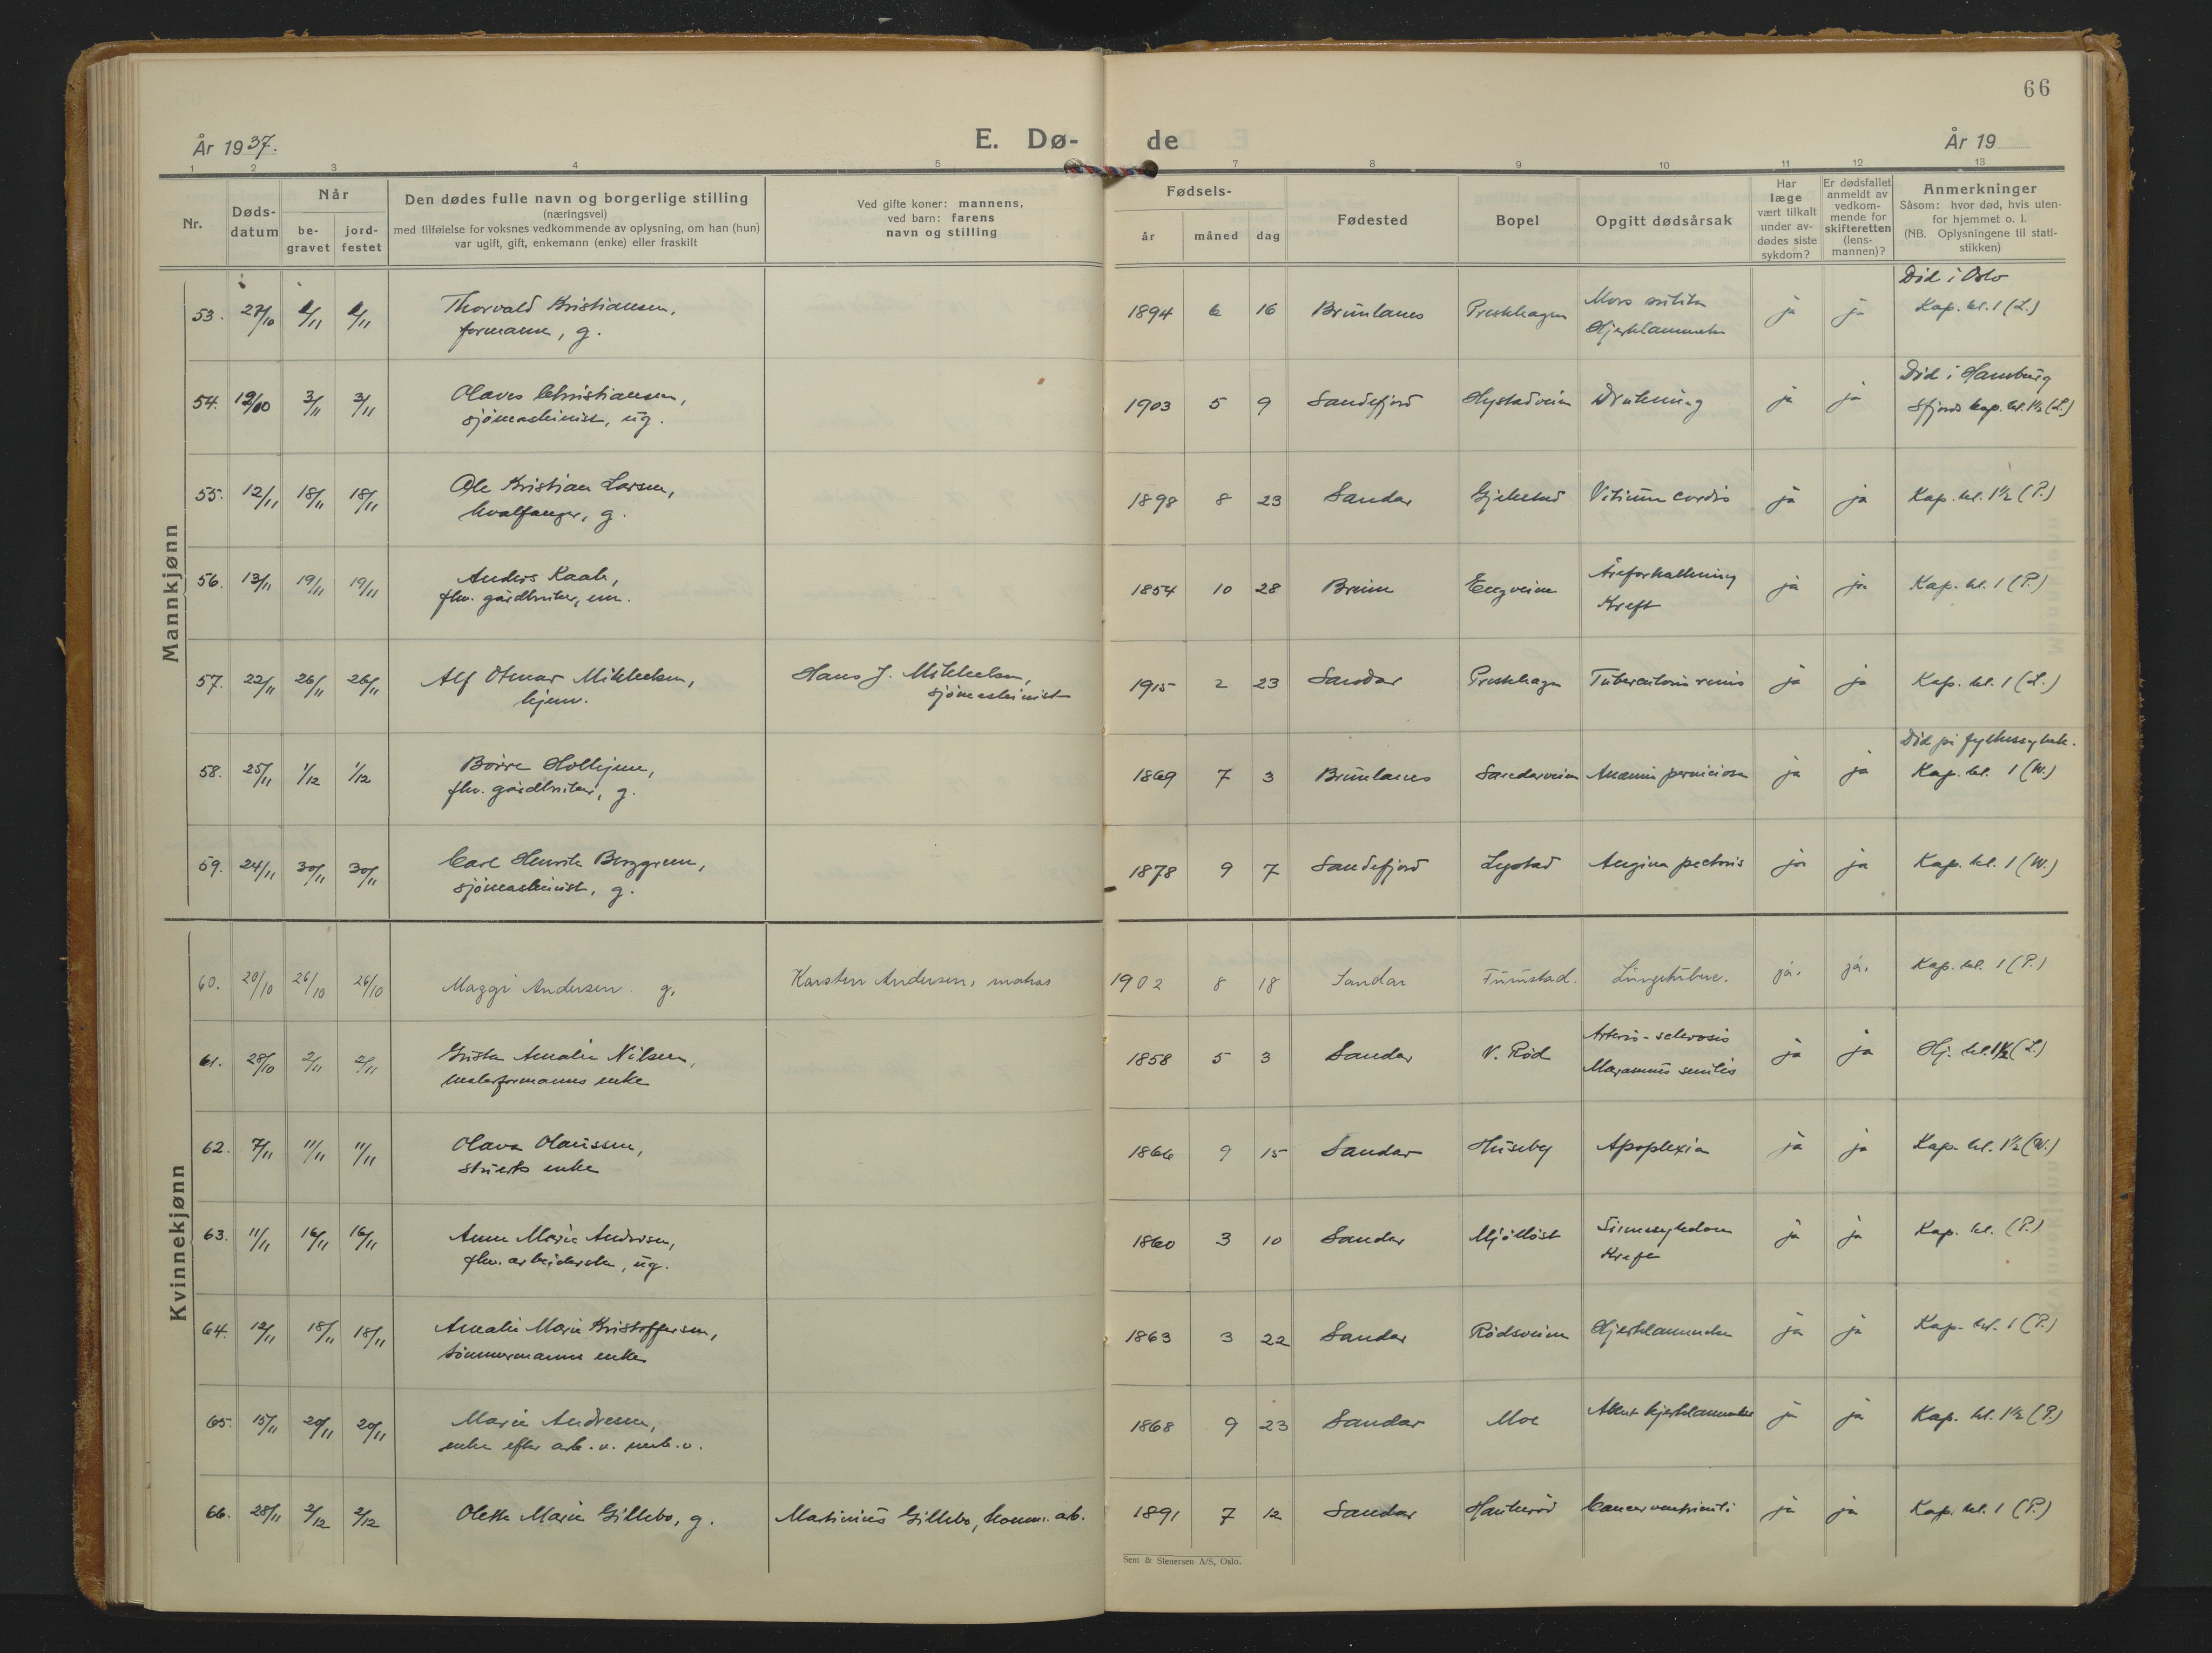 66
År 1937.
E. Dø-
de
År 19
1 2 3 4 5 7 8 9 10 11 12 13
Nr.
Døds-
datum
Når
be-
gravet
jord-
festet
Den dødes fulle navn og borgerlige stilling
(næringsvei)
med tilføielse for voksnes vedkommende av oplysning, om han (hun)
var ugift, gift, enkemann (enke) eller fraskilt
Ved gifte koner: mannens,
ved barn: farens
navn og stilling
Fødsels-
år måned dag
Fødested
Bopel
Opgitt dødsårsak
Har
læge
vært tilkalt
under av-
dødes siste
sykdom?
Er dødsfallet
anmeldt av
vedkom-
mende for
skifteretten
(lens-
mannen)?
Anmerkninger
Såsom: hvor død, hvis uten-
for hjemmet o. l.
(NB. Oplysningene til stati-
stikken)
Mannkjønn
Død i Oslo
53. 27/10 2/11 2/11 Thorvald Kristiansen, 1894 6 16 Brunlanes Preskhagen Mors subita ja ja Kap. kl. 1 (L.)
formann, g. Hjerklammelse
Død i Hamburg
54. 19/10 3/11 3/11 Olaves Christiansen, 1903 5 9 Sandefjord Hystadveien Drukning ja ja Sfjords kap. kl. 1½ (L.)
sjømaskinist, ug.
55. 12/11 18/11 18/11 Ole Kristian Larsen, 1898 8 23 Sandar Gjekstad Vitium cordis ja ja Kap. kl. 1½ (P.)
hvalfanger, g.
56. 13/11 19/11 19/11 Anders Kaale, 1854 10 28 Brunn Engveien Åreforkalkning ja ja Kap. kl. 1 (P.)
fhv. gårdbruker, em. Kreft
57. 22/11 26/11 26/11 Alf Otmar Mikkelsen, Hans J. Mikkelsen, 1915 2 23 Sandar Preskhagen Tuberculosis renis ja ja Kap. kl. 1 (L.)
hjemv. sjømaskinist
Død på fylkessykeh.
58. 25/11 1/12 1/12 Børre Holhjem, 1869 7 3 Brunlanes Sandarveien Anæmia perniciosa ja ja Kap. kl. 1 (W.)
fhv. gårdbruker, g.
59. 24/11 30/11 30/11 Carl Henrik Berggreen, 1878 9 7 Sandefjord Lystad Angina pectoris ja ja Kap. kl. 1 (W.)
sjømaskinist, g.
Kvinnekjønn
60. 20/10 26/10 26/10 Maggi Andersen. g. Karsten Andersen, matros 1902 8 18 Sandar Furustad. Lungetuberc. ja. ja. Kap. kl. 1 (P.)
61. 28/10 2/11 2/11 Nilsen, 1858 5 3 Sandar V. Rød Arterio-sclerosis ja ja Hj. kl. 1½ (L.)
malerformanns enke Marasmus senilis
62. 7/11 11/11 11/11 Olava Olaussen, 1866 9 15 Sandar Huseby Apoplexia ja ja Kap. kl. 1½ (W.)
stuerts enke
63. 11/11 16/11 16/11 Anne Marie Andersen, 1860 3 10 Sandar Mjølløst Sinnssykdom ja ja Kap. kl. (P.)
fhv. arbeiderske, ug. Kreft
64. 12/11 18/11 18/11 Amalie Marie Kristoffersen, 1863 3 22 Sandar Rødsveien Hjerklammelse ja ja Kap. kl. 1 (P.)
tømmermanns enke
65. 15/11 20/11 20/11 Marie Andresen, 1868 9 23 Sandar Moe Akut hjerklammelse ja ja Kap. kl. 1½ (P.)
enke efter arb. v. mek. v.
66. 28/11 2/12 2/12 Olette Marie Gillebo, g. Matinius Gillebo, komm. arb. 1891 7 12 Sandar Haukerød Cancer ventriculi ja ja Kap. kl. 1 (P.)
Sem & Stenersen A/S, Oslo.